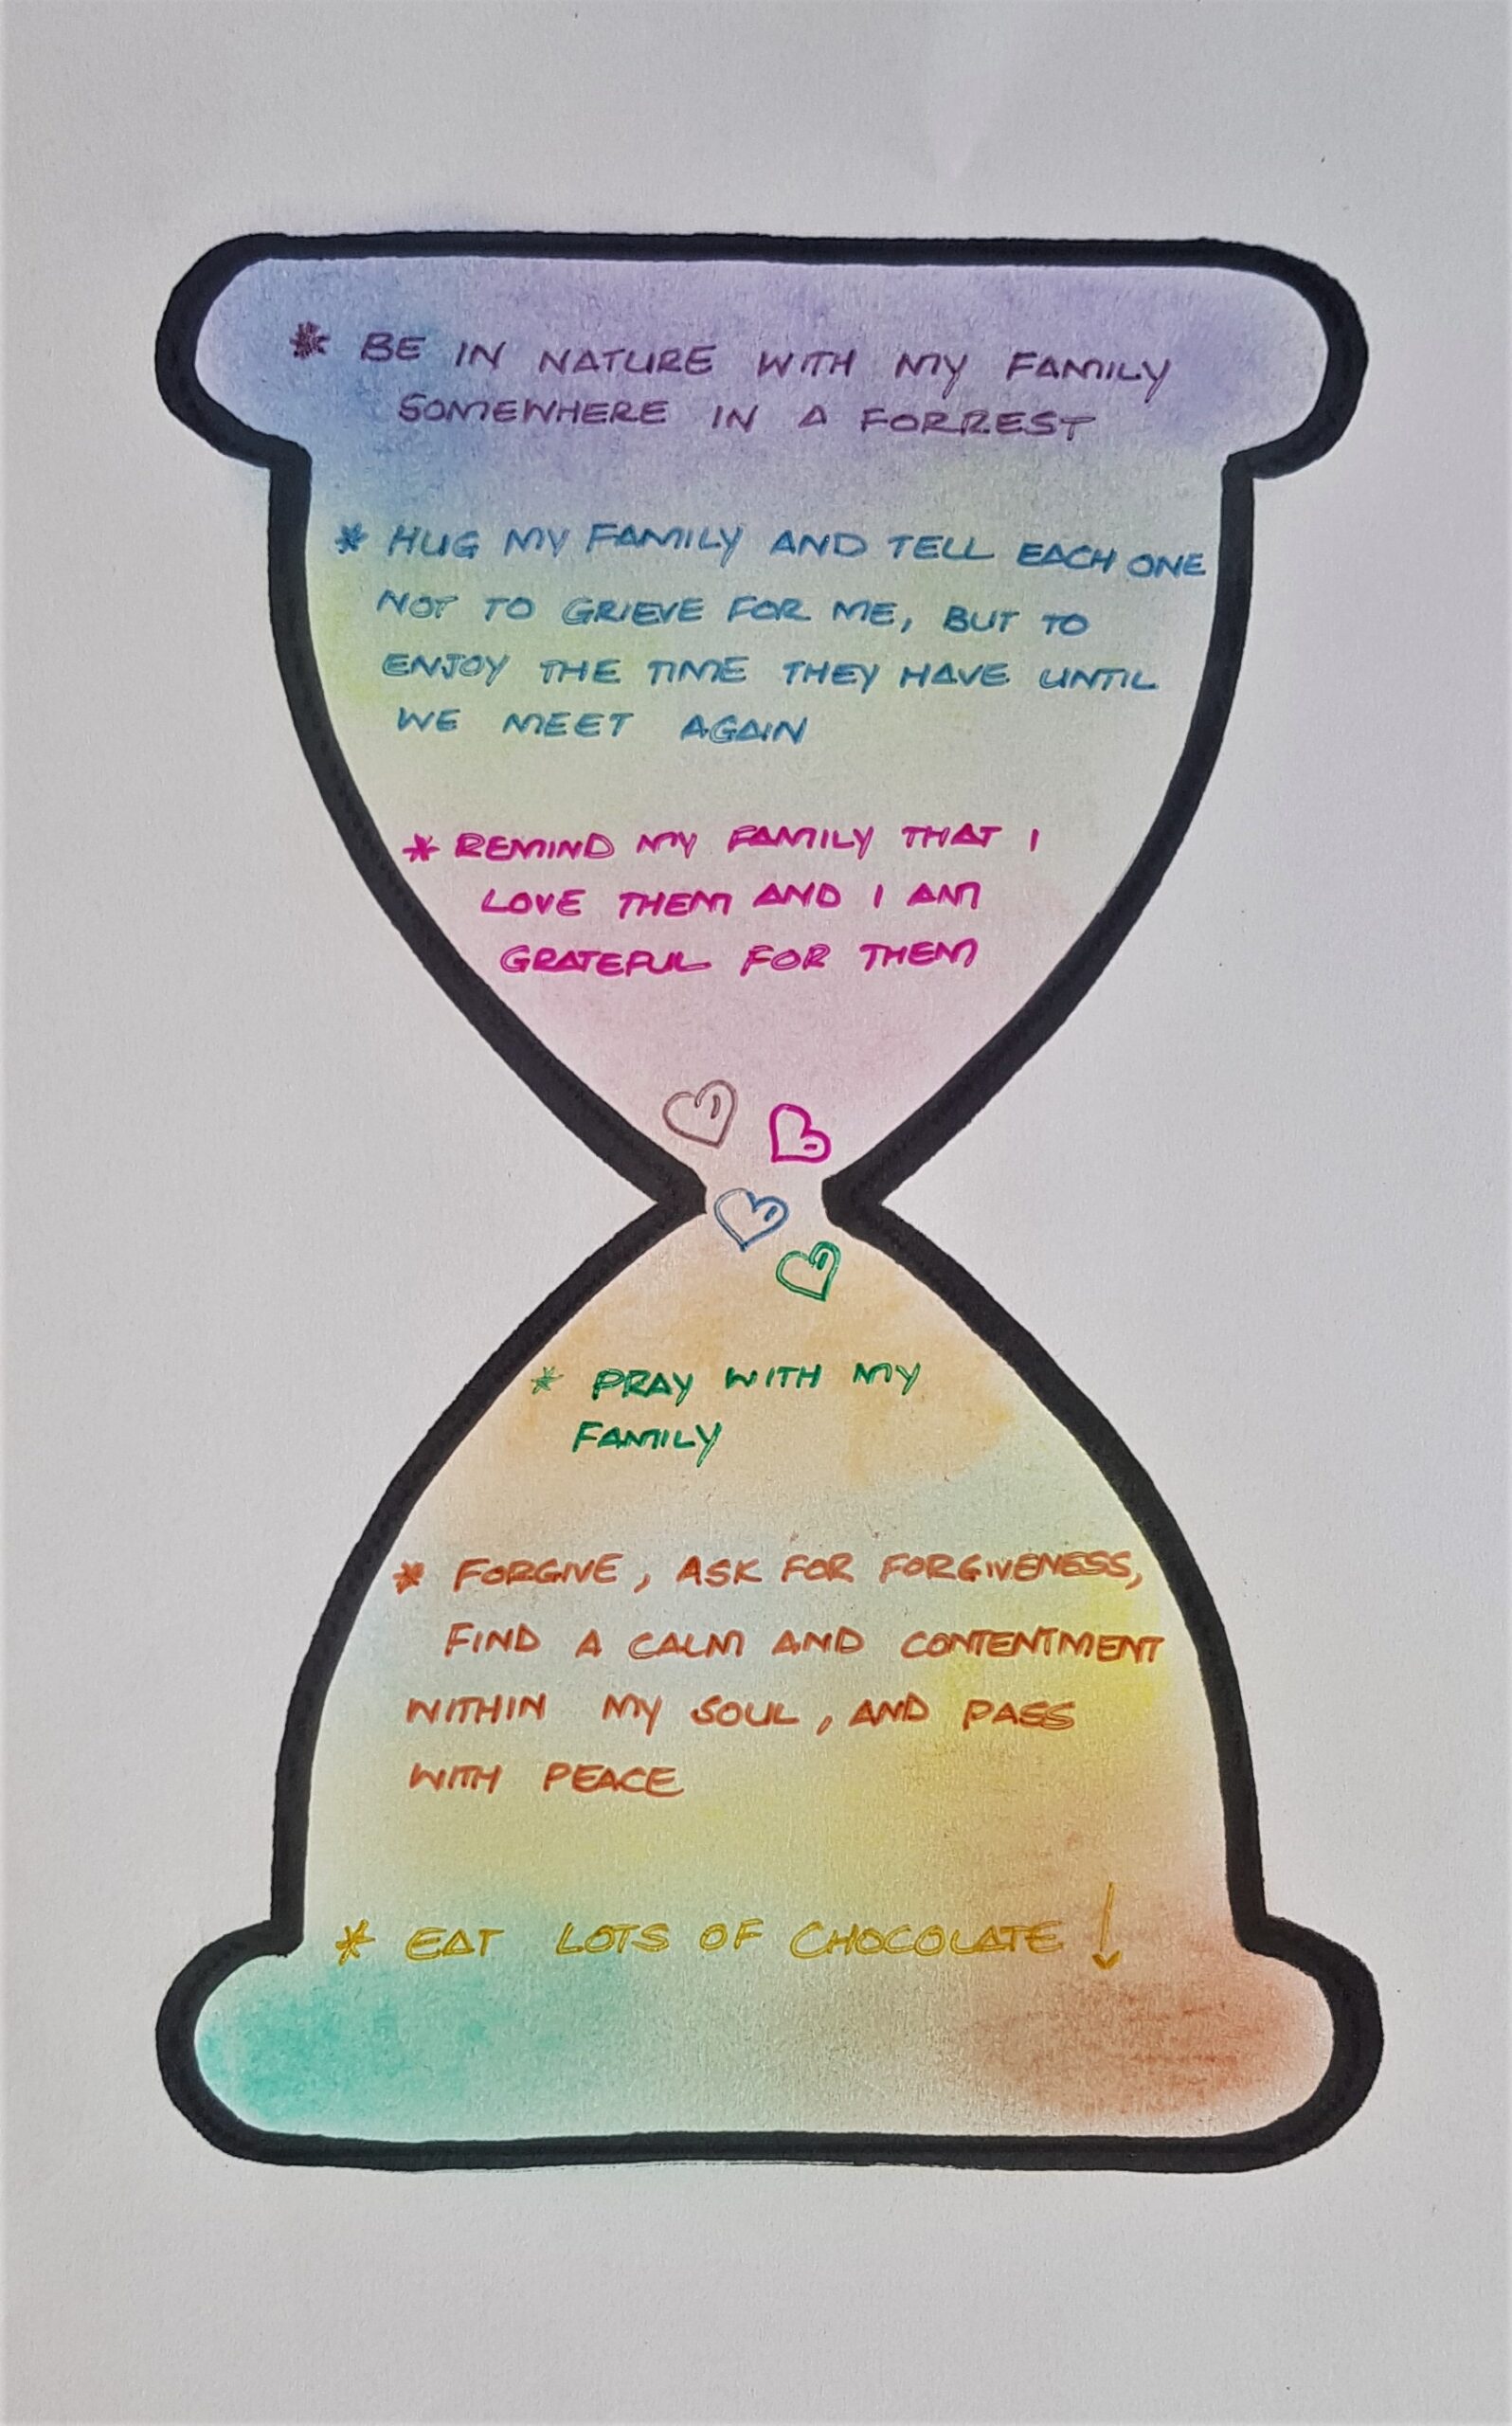 * BE IN NATURE WITH MY FAMILY
SOMEWHERE IN A FORREST
* HUG MY FAMILY AND TELL EACH ONE
NOT TO GRIEVE FOR ME, BUT TO
ENJOY THE TIME THEY HAVE UNTIL
WE MEET AGAIN
* REMIND MY FAMILY THAT I
LOVE THEM AND I AM
GRATEFUL FOR THEM
* PRAY WITH MY
FAMILY
* FORGIVE, ASK FOR FORGIVENESS,
FIND A CALM AND CONTENTMENT
WITHIN MY SOUL, AND PASS
WITH PEACE
* EAT LOTS OF CHOCOLATE ↓